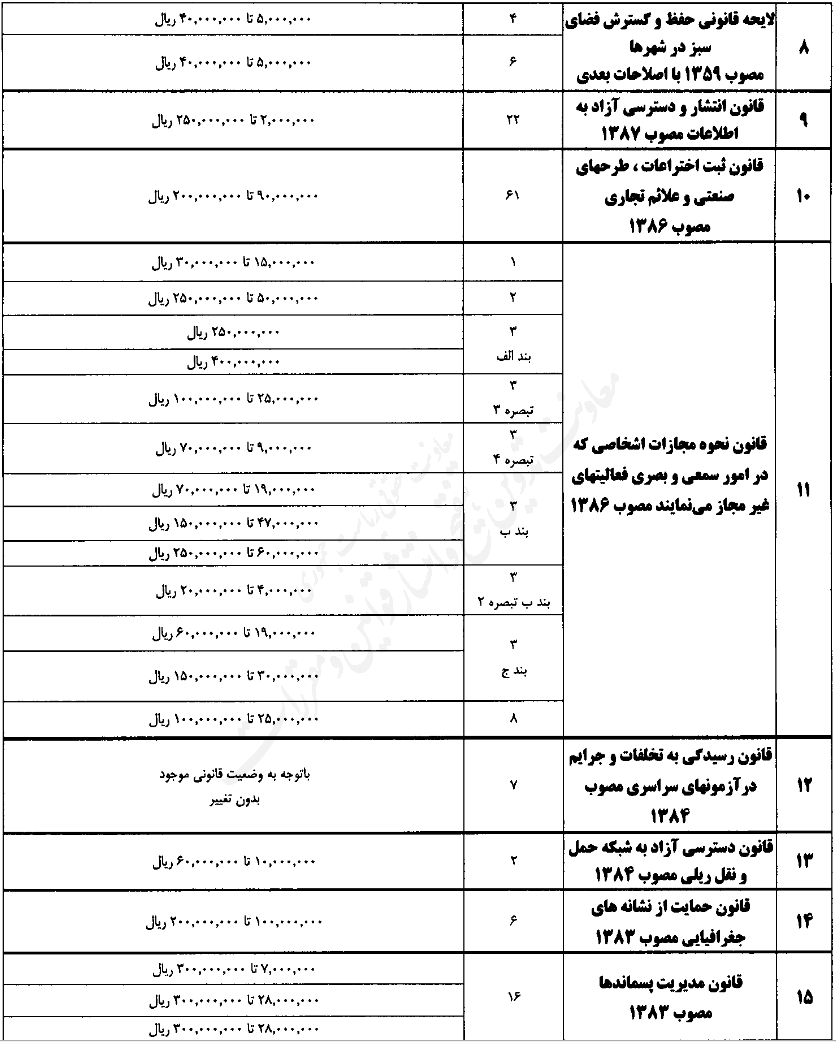 ۸
لایحه قانونی حفظ و گسترش فضای
سبز در شهرها
مصوب ۱۳۵۹ با اصلاحات بعدی
۴
۵,۰۰۰,۰۰۰ تا ۴۰,۰۰۰,۰۰۰ ریال
۶
۵,۰۰۰,۰۰۰ تا ۴۰,۰۰۰,۰۰۰ ریال
۹
قانون انتشار و دسترسی آزاد به
اطلاعات مصوب ۱۳۸۷
۲۲
۲,۰۰۰,۰۰۰ تا ۲۵۰,۰۰۰,۰۰۰ ریال
۱۰
قانون ثبت اختراعات ، طرحهای
صنعتی و علائم تجاری
مصوب ۱۳۸۶
۶۱
۹۰,۰۰۰,۰۰۰ تا ۲۰۰,۰۰۰,۰۰۰ ریال
۱۱
قانون نحوه مجازات اشخاصی که
در امور سمعی و بصری فعالیتهای
غیر مجاز می‌نمایند مصوب ۱۳۸۶
۱
۱۵,۰۰۰,۰۰۰ تا ۳۰,۰۰۰,۰۰۰ ریال
۲
۵۰,۰۰۰,۰۰۰ تا ۲۵۰,۰۰۰,۰۰۰ ریال
۳
بند الف
۲۵۰,۰۰۰,۰۰۰ ریال
۴۰۰,۰۰۰,۰۰۰ ریال
۳
تبصره ۳
۲۵,۰۰۰,۰۰۰ تا ۱۰۰,۰۰۰,۰۰۰ ریال
۳
تبصره ۴
۹,۰۰۰,۰۰۰ تا ۷۰,۰۰۰,۰۰۰ ریال
۳
بند ب
۱۹,۰۰۰,۰۰۰ تا ۷۰,۰۰۰,۰۰۰ ریال
۴۷,۰۰۰,۰۰۰ تا ۱۵۰,۰۰۰,۰۰۰ ریال
۶۰,۰۰۰,۰۰۰ تا ۲۵۰,۰۰۰,۰۰۰ ریال
۳
بند ب تبصره ۲
۴,۰۰۰,۰۰۰ تا ۲۰,۰۰۰,۰۰۰ ریال
۳
بند ج
۱۹,۰۰۰,۰۰۰ تا ۶۰,۰۰۰,۰۰۰ ریال
۳۰,۰۰۰,۰۰۰ تا ۱۵۰,۰۰۰,۰۰۰ ریال
۸
۲۵,۰۰۰,۰۰۰ تا ۱۰۰,۰۰۰,۰۰۰ ریال
۱۲
قانون رسیدگی به تخلفات و جرایم
درآزمونهای سراسری مصوب
۱۳۸۴
۷
باتوجه به وضعیت قانونی موجود
بدون تغییر
۱۳
قانون دسترسی آزاد به شبکه حمل
و نقل ریلی مصوب ۱۳۸۴
۲
۱۰,۰۰۰,۰۰۰ تا ۶۰,۰۰۰,۰۰۰ ریال
۱۴
قانون حمایت از نشانه های
جغرافیایی مصوب ۱۳۸۳
۶
۱۰۰,۰۰۰,۰۰۰ تا ۲۰۰,۰۰۰,۰۰۰ ریال
۱۵
قانون مدیریت پسماندها
مصوب ۱۳۸۳
۱۶
۷,۰۰۰,۰۰۰ تا ۳۰۰,۰۰۰,۰۰۰ ریال
۲۸,۰۰۰,۰۰۰ تا ۳۰۰,۰۰۰,۰۰۰ ریال
۲۸,۰۰۰,۰۰۰ تا ۳۰۰,۰۰۰,۰۰۰ ریال
معاونت حقوقی ریاست جمهوری
معاونت تدوین تنقیح و انتشار قوانین و مقررات